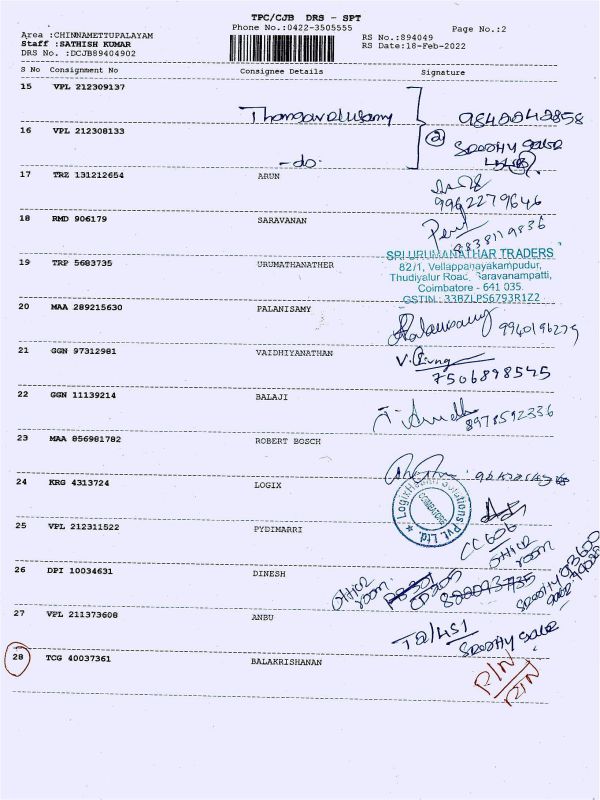 TPC/CJB DRS - SPT
Phone No.:0422-3505555
Page No.:2
Area :CHINNAMETTUPALAYAM
Staff :SATHISH KUMAR
DRS No. :DCJB89404902
RS No.:894049
RS Date:18-Feb-2022
S No Consignment No Consignee Details Signature
15 VPL 212309137
Thangavelusamy 9842242858
16 VPL 212308133
-do-
17 TRZ 131212654 ARUN
9962279646
18 RMD 906179 SARAVANAN
8838119836
19 TRP 5683735 URUMATHANATHER
SRI URUMANATHAR TRADERS
82/1, Vellappanayakampudur,
Thudiyalur Road, Saravanampatti,
Coimbatore - 641 035.
GSTIN : 33BZLPS6793R1Z2
20 MAA 289215630 PALANISAMY
Palanisamy
21 GGN 97312981 VAIDHIYANATHAN
7506898545
22 GGN 11139214 BALAJI
8978592336
23 MAA 856981782 ROBERT BOSCH
24 KRG 4313724 LOGIX
Logix Health Solutions Pvt. Ltd.
COIMBATORE
25 VPL 212311522 PYDIMARRI
CC606
office
room
26 DPI 10034631 DINESH
office
room
27 VPL 211373608 ANBU
T2/451
28 TCG 40037361 BALAKRISHANAN